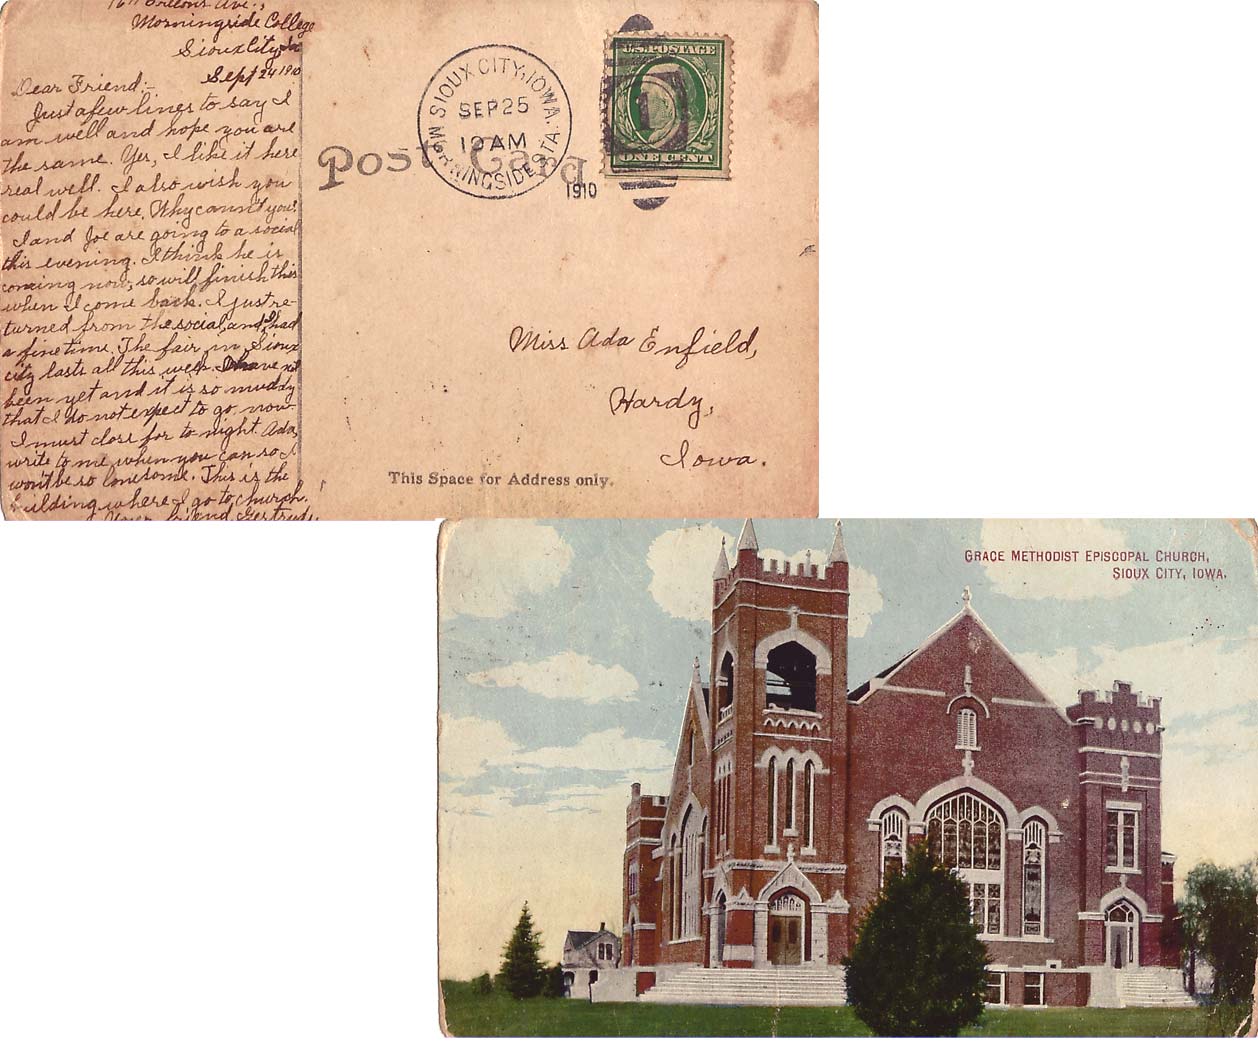 Morningside College
Sioux City, Ia
Sept 24 1910
Dear Friend:-
Just a few lines to say I
am well and hope you are
the same. Yes, I like it here
real well. I also wish you
could be here. Why cann't you?
I and Joe are going to a social
this evening. I think he is
coming now, so will finish this
when I come back. I just re-
turned from the social, and I had
a fine time. The fair in Sioux
city lasts all this week. I have not
been yet and it is so muddy
that I do not expect to go now.
I must close for to night. Ada,
write to me when you can so I
wont be so lonesome. This is the
building where I go to church.
Your friend Gertrude.
Post Card
SIOUX CITY, IOWA.
SEP 25
12 AM
MORNINGSIDE STA.
1910
U.S. POSTAGE
1
ONE CENT
Miss Ada Enfield,
Hardy,
Iowa.
This Space for Address only.
GRACE METHODIST EPISCOPAL CHURCH,
SIOUX CITY, IOWA.